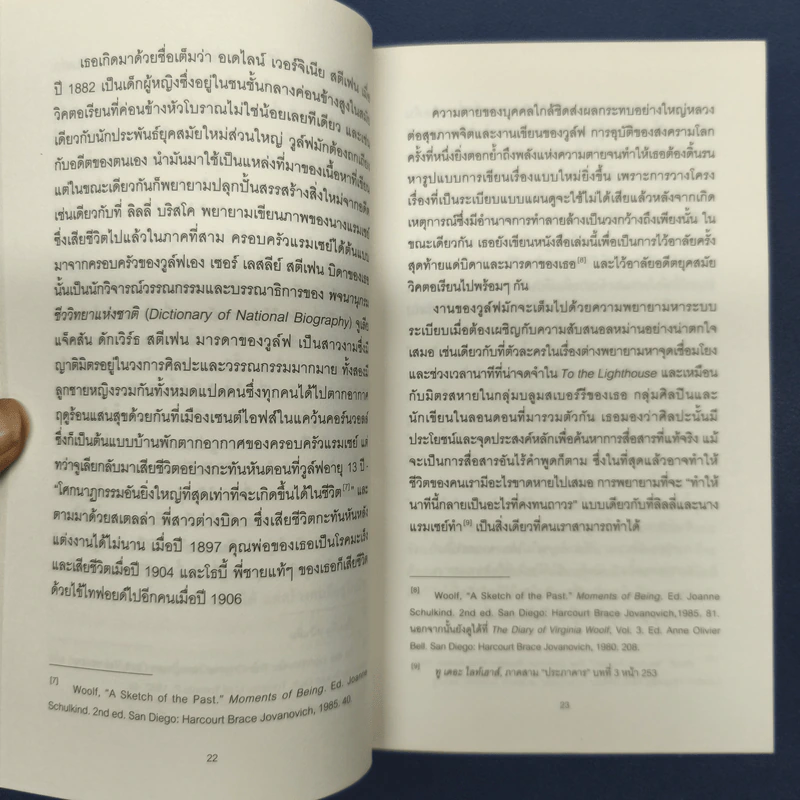 เธอเกิดมาด้วยชื่อเต็มว่า อเดไลน์ เวอร์จิเนีย สตีเฟน เมื่อ
ปี 1882 เป็นเด็กผู้หญิงซึ่งอยู่ในชนชั้นกลางค่อนข้างสูงในสมัย
วิคตอเรียนที่ค่อนข้างหัวโบราณไม่ใช่น้อยเลยทีเดียว และเช่น
เดียวกับนักประพันธ์ยุคสมัยใหม่ส่วนใหญ่ วูล์ฟมักต้องถกเถียง
กับอดีตของตนเอง นำมันมาใช้เป็นแหล่งที่มาของเนื้อหาที่เขียน
แต่ในขณะเดียวกันก็พยายามปลุกปั้นสรรสร้างสิ่งใหม่จากอดีต
เช่นเดียวกับที่ ลิลลี่ บริสโค พยายามเขียนภาพของนางแรมเซย์
ซึ่งเสียชีวิตไปแล้วในภาคที่สาม ครอบครัวแรมเซย์ได้ต้นแบบ
มาจากครอบครัวของวูล์ฟเอง เซอร์ เลสลีย์ สตีเฟน บิดาของเธอ
นั้นเป็นนักวิจารณ์วรรณกรรมและบรรณาธิการของ พจนานุกรม
ชีววิทยาแห่งชาติ (Dictionary of National Biography) จูเลีย
แจ็คสัน ดักเวิร์ธ สตีเฟน มารดาของวูล์ฟ เป็นสาวงามซึ่งมี
ญาติมิตรอยู่ในวงการศิลปะและวรรณกรรมมากมาย ทั้งสองมี
ลูกชายหญิงรวมกันทั้งหมดแปดคนซึ่งทุกคนได้ไปตากอากาศ
ฤดูร้อนแสนสุขด้วยกันที่เมืองเซนต์ไอฟส์ในแคว้นคอร์นวอลล์
ซึ่งก็เป็นต้นแบบบ้านพักตากอากาศของครอบครัวแรมเซย์ แต่
ทว่าจูเลียกลับมาเสียชีวิตอย่างกะทันหันตอนที่วูล์ฟอายุ 13 ปี -
"โศกนาฏกรรมอันยิ่งใหญ่ที่สุดเท่าที่จะเกิดขึ้นได้ในชีวิต[7]" และ
ตามมาด้วยสเตลล่า พี่สาวต่างบิดา ซึ่งเสียชีวิตกะทันหันหลัง
แต่งงานได้ไม่นาน เมื่อปี 1897 คุณพ่อของเธอเป็นโรคมะเร็ง
และเสียชีวิตเมื่อปี 1904 และโธบี้ พี่ชายแท้ๆ ของเธอก็เสียชีวิต
ด้วยไข้ไทฟอยด์ไปอีกคนเมื่อปี 1906
[7] Woolf, "A Sketch of the Past." Moments of Being. Ed. Joanne
Schulkind. 2nd ed. San Diego: Harcourt Brace Jovanovich, 1985. 40.
22
ความตายของบุคคลใกล้ชิดส่งผลกระทบอย่างใหญ่หลวง
ต่อสุขภาพจิตและงานเขียนของวูล์ฟ การอุบัติของสงครามโลก
ครั้งที่หนึ่งยิ่งตอกย้ำถึงพลังแห่งความตายจนทำให้เธอต้องดิ้นรน
หารูปแบบการเขียนเรื่องแบบใหม่ยิ่งขึ้น เพราะการวางโครง
เรื่องที่เป็นระเบียบแบบแผนดูจะใช้ไม่ได้เสียแล้วหลังจากเกิด
เหตุการณ์ซึ่งมีอำนาจการทำลายล้างเป็นวงกว้างถึงเพียงนั้น ใน
ขณะเดียวกัน เธอยังเขียนหนังสือเล่มนี้เพื่อเป็นการไว้อาลัยครั้ง
สุดท้ายแด่บิดาและมารดาของเธอ[8] และไว้อาลัยอดีตยุคสมัย
วิคตอเรียนไปพร้อมๆ กัน
งานของวูล์ฟมักจะเต็มไปด้วยความพยายามหาระบบ
ระเบียบเมื่อต้องเผชิญกับความสับสนอลหม่านอย่างน่าตกใจ
เสมอ เช่นเดียวกับที่ตัวละครในเรื่องต่างพยายามหาจุดเชื่อมโยง
และช่วงเวลานาทีที่น่าจดจำใน To the Lighthouse และเหมือน
กับมิตรสหายในกลุ่มบลูมสเบอร์รีของเธอ กลุ่มศิลปินและ
นักเขียนในลอนดอนที่มารวมตัวกัน เธอมองว่าศิลปะนั้นมี
ประโยชน์และจุดประสงค์หลักเพื่อค้นหาการสื่อสารที่แท้จริง แม้
จะเป็นการสื่อสารอันไร้คำพูดก็ตาม ซึ่งในที่สุดแล้วอาจทำให้
ชีวิตของคนเรามีอะไรขาดหายไปเสมอ การพยายามที่จะ "ทำให้
นาทีนี้กลายเป็นอะไรที่คงทนถาวร" แบบเดียวกับที่ลิลลี่และนาง
แรมเซย์ทำ[9] เป็นสิ่งเดียวที่คนเราสามารถทำได้
[8] Woolf, "A Sketch of the Past." Moments of Being. Ed. Joanne
Schulkind. 2nd ed. San Diego: Harcourt Brace Jovanovich,1985. 81.
นอกจากนั้นยังดูได้ที่ The Diary of Virginia Woolf, Vol. 3. Ed. Anne Olivier
Bell. San Diego: Harcourt Brace Jovanovich, 1980. 208.
[9] ทู เดอะ ไลท์เฮาส์, ภาคสาม "ประภาคาร" บทที่ 3 หน้า 253
23